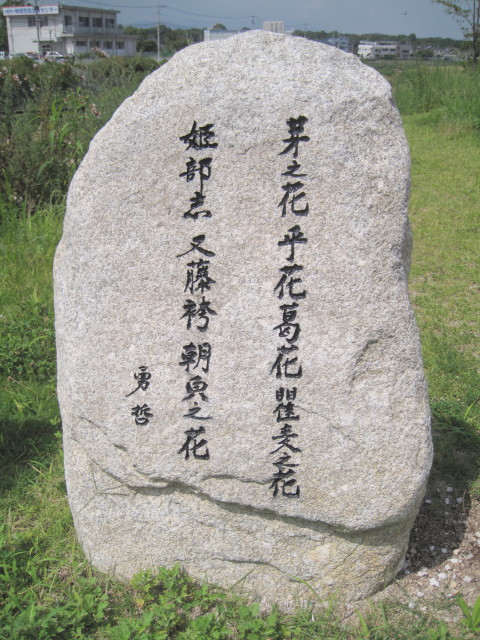 芽之花 乎花葛花 瞿麦之花
姫部志 又藤袴 朝皃之花
勇哲